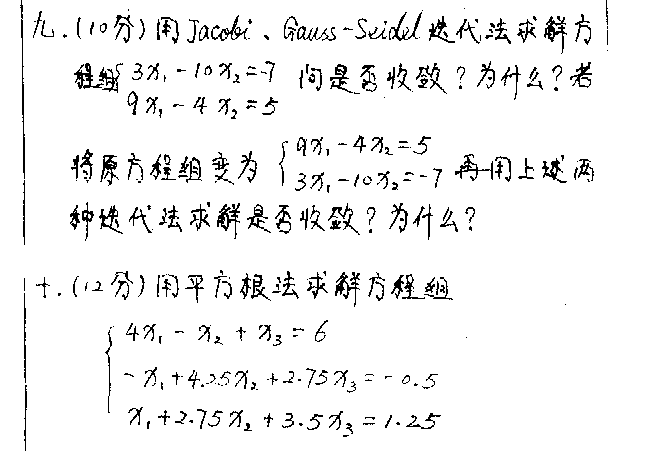 九.(10分)用Jacobi、Gauss-Seidel迭代法求解方
程组{3x₁-10x₂=-7 问是否收敛?为什么?若
9x₁-4x₂=5
将原方程组变为{9x₁-4x₂=5 再用上述两
3x₁-10x₂=-7
种迭代法求解是否收敛?为什么?
十.(12分)用平方根法求解方程组
{4x₁-x₂+x₃=6
-x₁+4.25x₂+2.75x₃=-0.5
x₁+2.75x₂+3.5x₃=1.25